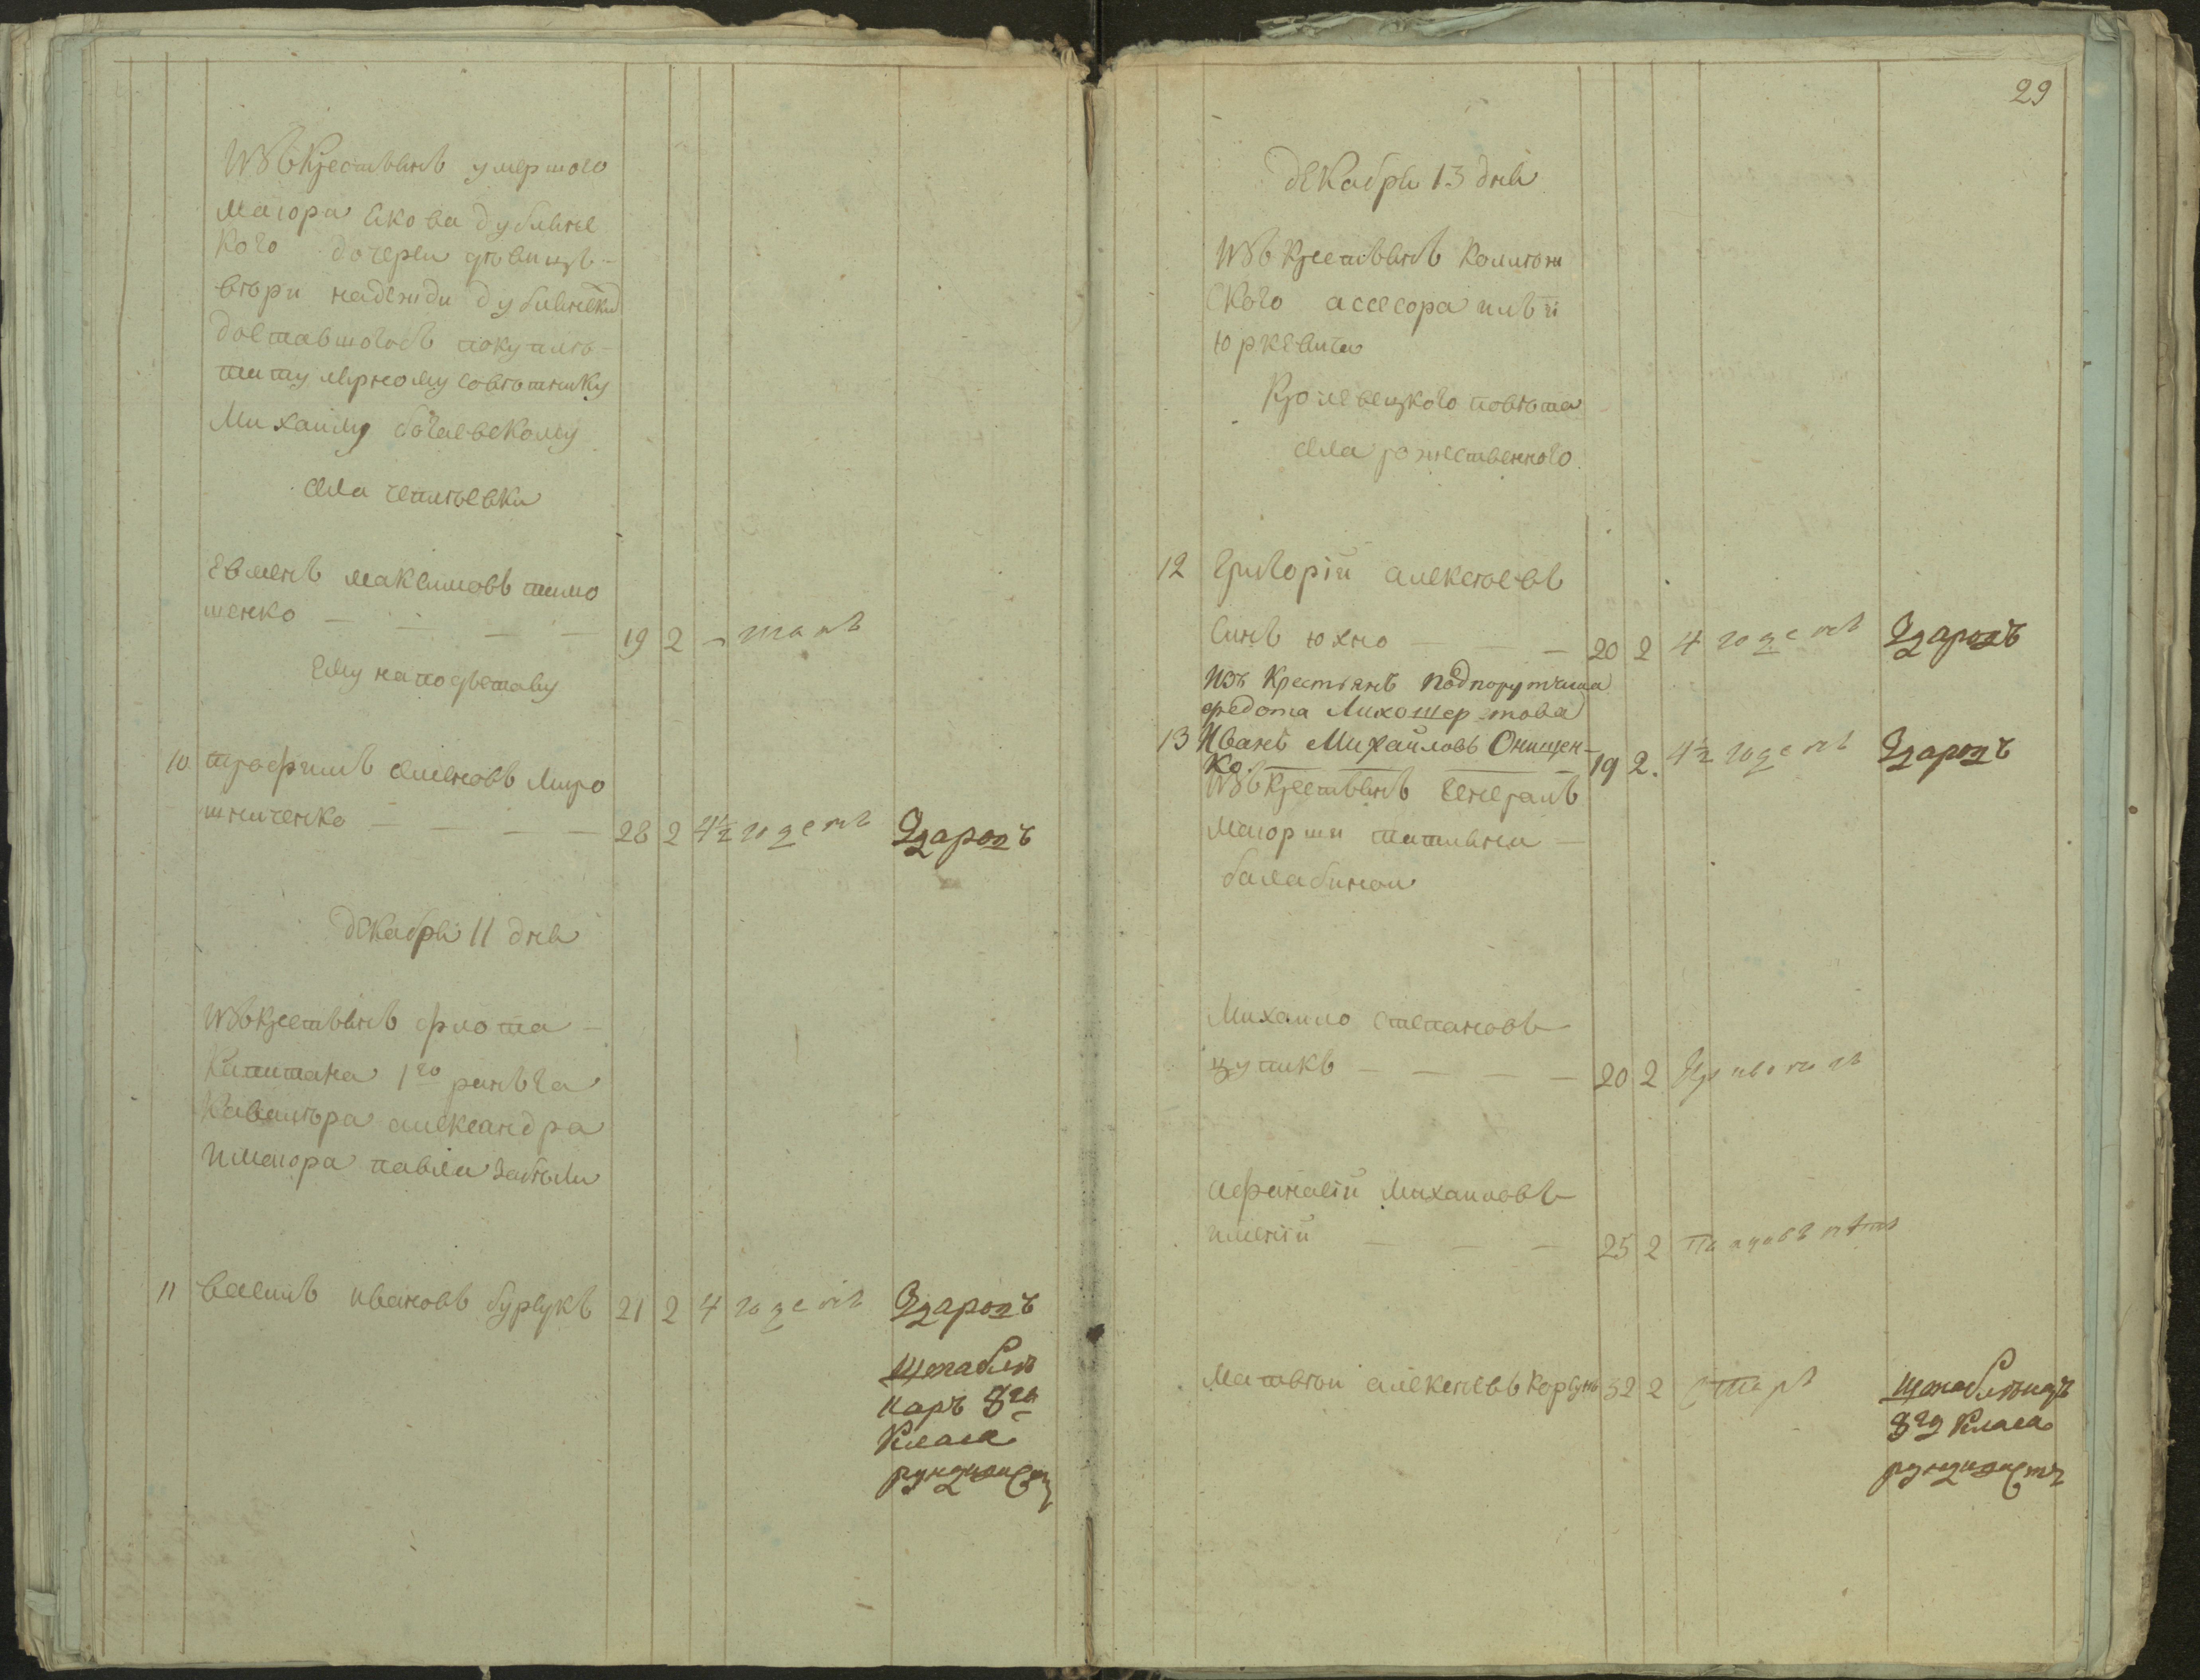 Изъ Крестьянъ умершого
Маіора Якова дублянс
кого дочерей девицъ
веры надежди дублянски
доставшогось покупкѣ
титулярному советнику
Михаилу богаевскому
села чеплеевки
Евменъ максимовъ тимо
шенко — — — — 19 2 — малъ
Ему на подставу
10 трофимъ семеновъ Миро
шниченко — — — — 28 2 4½ годенъ Здаровъ
декабря 11 дня
Изъ крестьянъ флота
Капитана 1го ранъга
Кавалера александра
И маіора павла
11 василь ивановъ бурлукъ 21 2 4 годенъ Здаровъ
Штаблѣ
каръ 8го
Класа
29
декабря 13 дня
Изъ крестьянъ Колеж
ского асесора илъи
юркевича
Кролевецкого повета
села рожественного
12 Григорій алексеевъ
Синъ юхно — — — 20 2 4 годенъ Здаровъ
Изъ Крестьянъ подпорутчика
федота Лихошерстова
13 Иванъ Михайловъ Онищен-
ко. — — — 19 2. 4½ годенъ Здаровъ
Изъ крестьянъ Генералъ
Маіорши татьяни
балабиной
Михаило степановъ
цупикъ — — — — 20 2
Афанасій Михаиловъ
— — — 25 2
Матвей алексеевъ Корзунъ 32 2 старъ
8го Класа